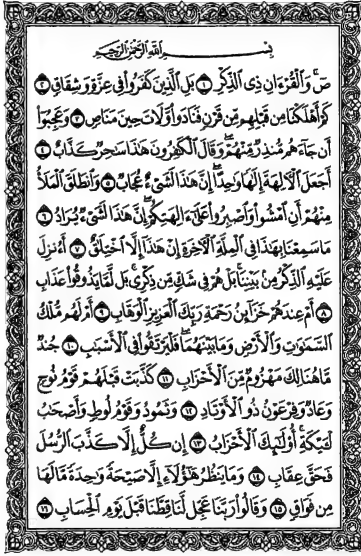 بِسْمِ اللَّهِ الرَّحْمَٰنِ الرَّحِيمِ
صٓ ۚ وَالْقُرْءَانِ ذِى الذِّكْرِ ١ بَلِ الَّذِينَ كَفَرُوا۟ فِى عِزَّةٍ وَشِقَاقٍ ٢
كَمْ أَهْلَكْنَا مِن قَبْلِهِم مِّن قَرْنٍ فَنَادَوا۟ وَّلَاتَ حِينَ مَنَاصٍ ٣ وَعَجِبُوٓا۟
أَن جَآءَهُم مُّنذِرٌ مِّنْهُمْ ۖ وَقَالَ الْكَٰفِرُونَ هَٰذَا سَٰحِرٌ كَذَّابٌ ٤
أَجَعَلَ الْءَالِهَةَ إِلَٰهًا وَٰحِدًا ۖ إِنَّ هَٰذَا لَشَىْءٌ عُجَابٌ ٥ وَانطَلَقَ الْمَلَأُ
مِنْهُمْ أَنِ امْشُوا۟ وَاصْبِرُوا۟ عَلَىٰٓ ءَالِهَتِكُمْ ۖ إِنَّ هَٰذَا لَشَىْءٌ يُرَادُ ٦
مَا سَمِعْنَا بِهَٰذَا فِى الْمِلَّةِ الْءَاخِرَةِ إِنْ هَٰذَآ إِلَّا اخْتِلَٰقٌ ٧ أَءُنزِلَ
عَلَيْهِ الذِّكْرُ مِنۢ بَيْنِنَا ۚ بَلْ هُمْ فِى شَكٍّ مِّن ذِكْرِى ۖ بَل لَّمَّا يَذُوقُوا۟ عَذَابِ
٨ أَمْ عِندَهُمْ خَزَآئِنُ رَحْمَةِ رَبِّكَ الْعَزِيزِ الْوَهَّابِ ٩ أَمْ لَهُم مُّلْكُ
السَّمَٰوَٰتِ وَالْأَرْضِ وَمَا بَيْنَهُمَا ۖ فَلْيَرْتَقُوا۟ فِى الْأَسْبَٰبِ ١٠ جُندٌ
مَّا هُنَالِكَ مَهْزُومٌ مِّنَ الْأَحْزَابِ ١١ كَذَّبَتْ قَبْلَهُمْ قَوْمُ نُوحٍ
وَعَادٌ وَفِرْعَوْنُ ذُو الْأَوْتَادِ ١٢ وَثَمُودُ وَقَوْمُ لُوطٍ وَأَصْحَٰبُ
لْـَٔيْكَةِ ۚ أُو۟لَٰٓئِكَ الْأَحْزَابُ ١٣ إِن كُلٌّ إِلَّا كَذَّبَ الرُّسُلَ
فَحَقَّ عِقَابِ ١٤ وَمَا يَنظُرُ هَٰٓؤُلَآءِ إِلَّا صَيْحَةً وَٰحِدَةً مَّا لَهَا
مِن فَوَاقٍ ١٥ وَقَالُوا۟ رَبَّنَا عَجِّل لَّنَا قِطَّنَا قَبْلَ يَوْمِ الْحِسَابِ ١٦